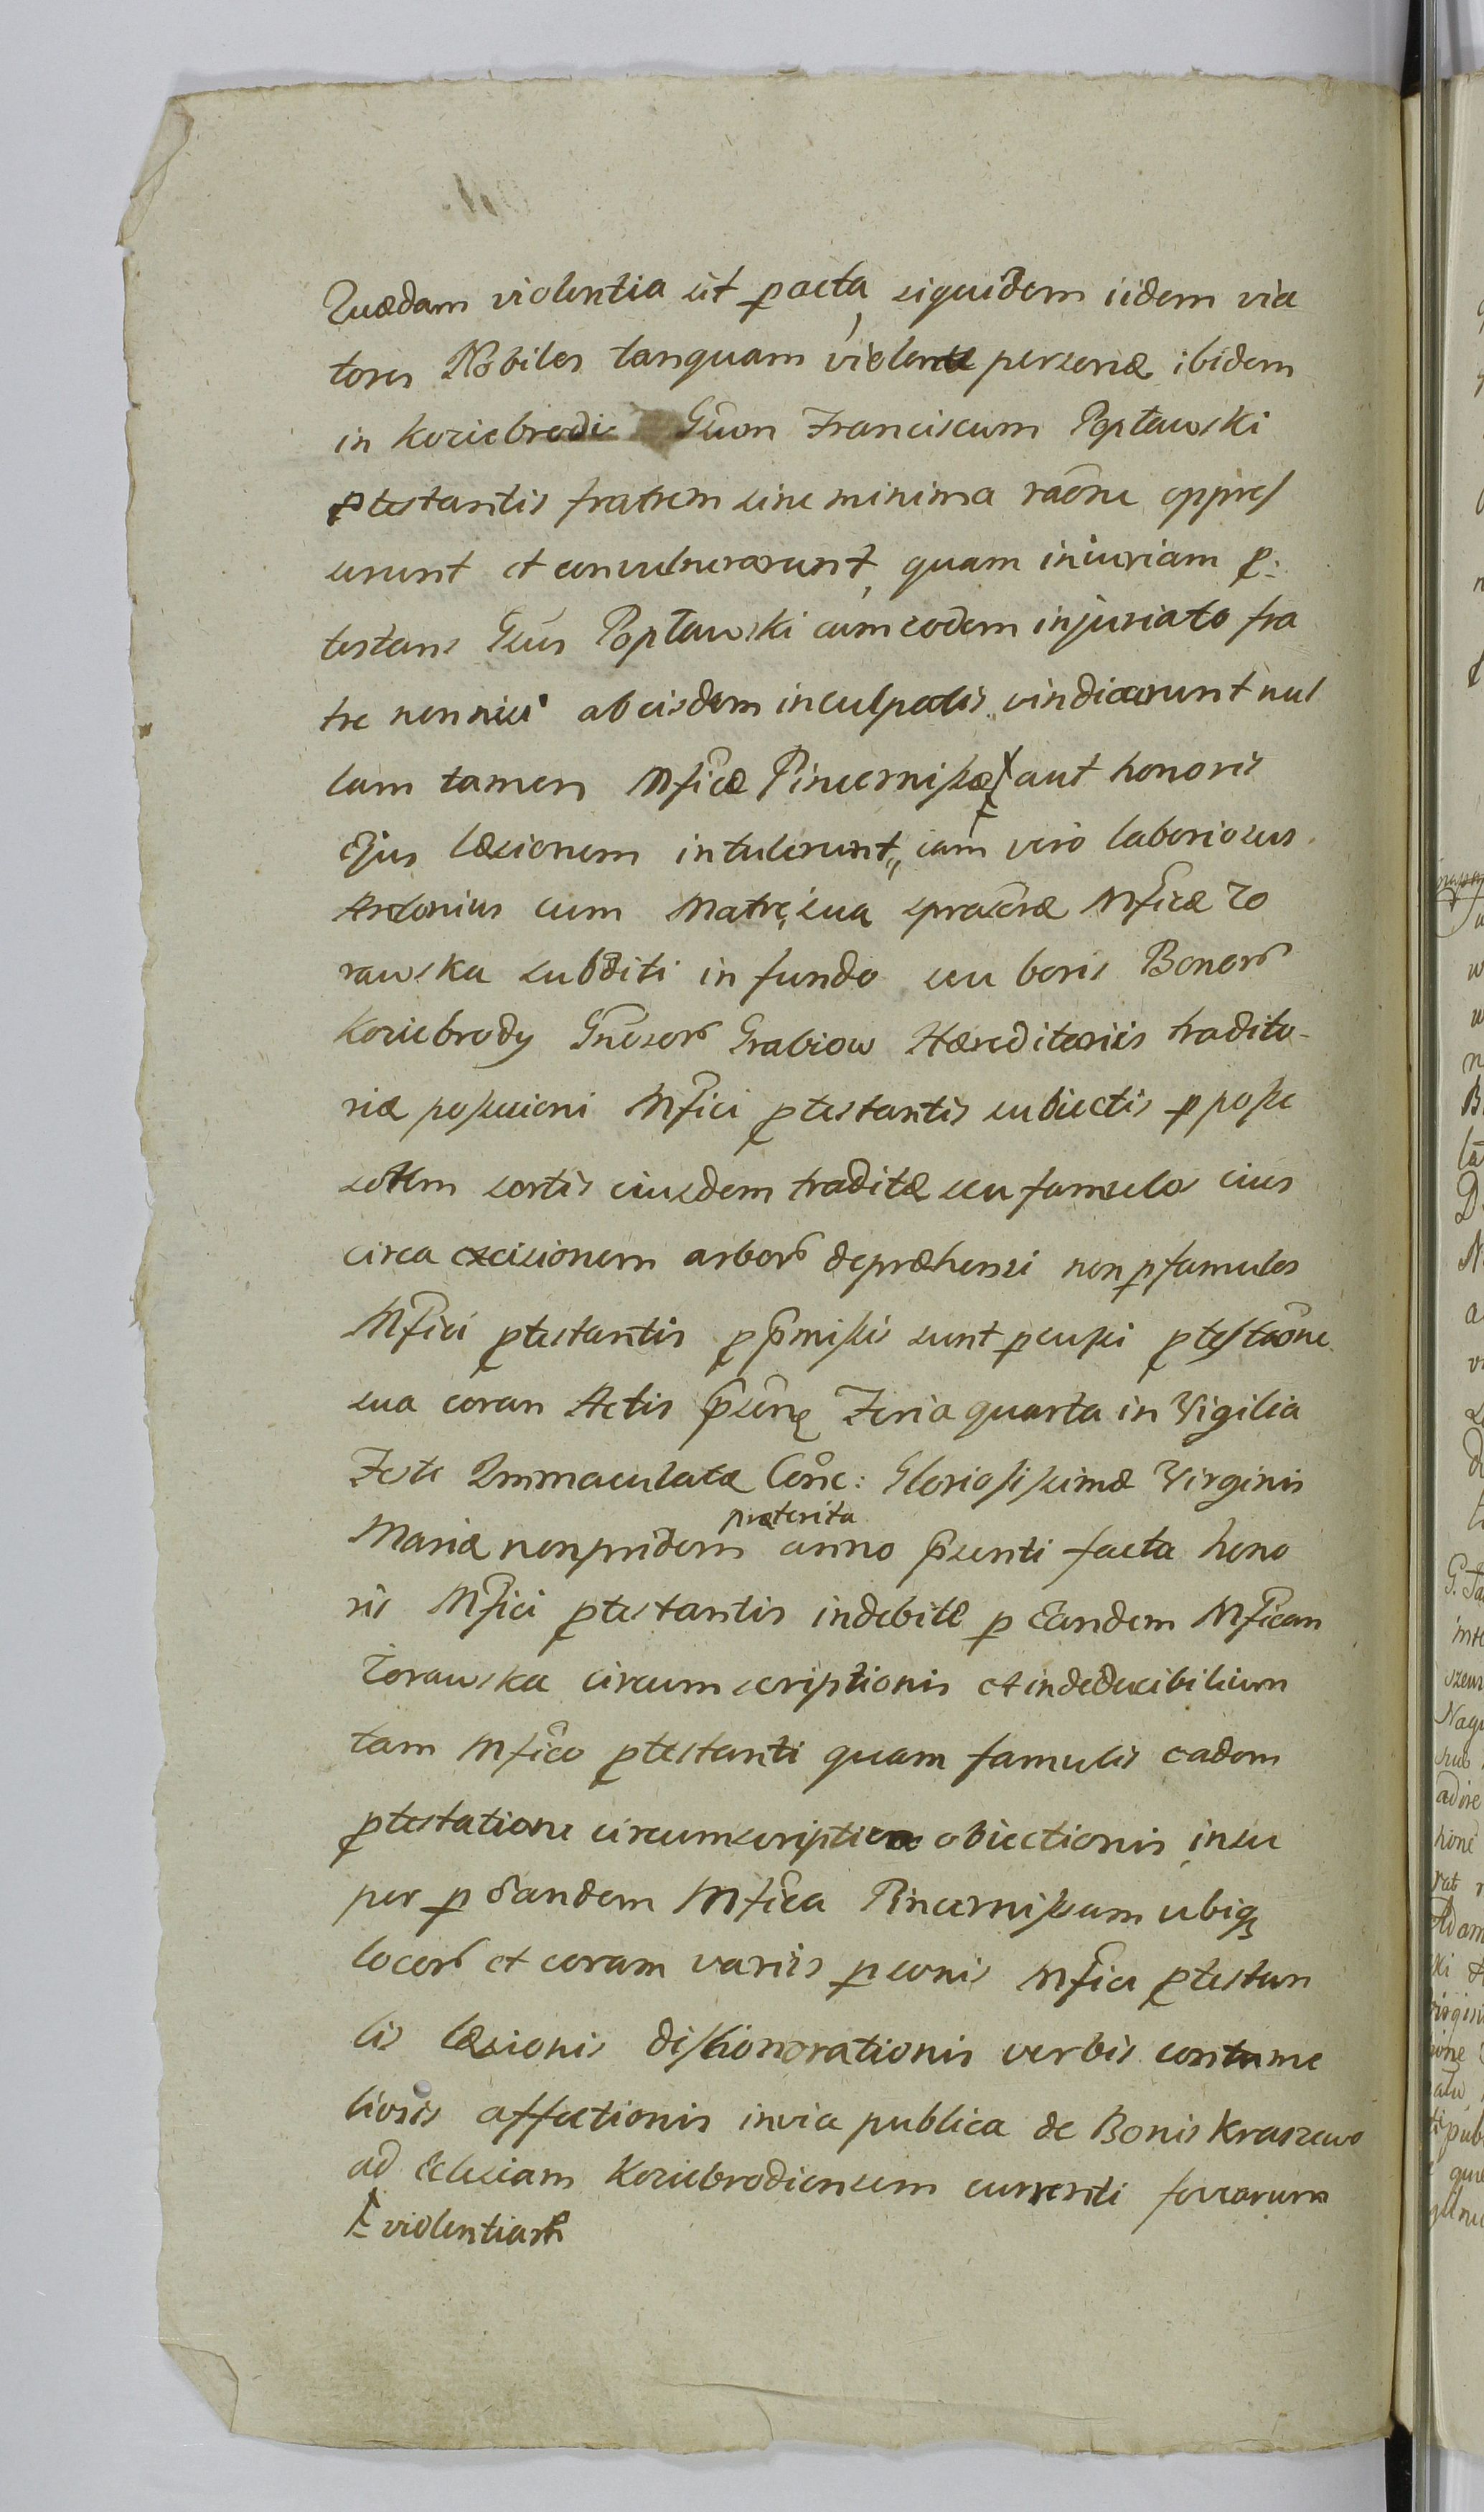 Quædam violentia sit pacta, siquidem iidem via
tores Nobiles tanquam violentæ personæ ibidem
in Koziebrodi Gnõn Franciscum Popławski
ptestantis fratrem sine minima raõne oppres
serunt et convulnerarunt, quam iniuriam p:
testans Gnûs Popławski cum eodem injuriato fra
tre non nisi ab eisdem inculpatis vindicarunt nul
lam tamen Mficæ Pincernissæ aut honoris
Ejus læsionem intulerunt, iam vero laboriosus
Antonius cum Matre sua Mficæ Zo
rawska subditi in fundo seu boris Bonor
Koziebrody Gnõsor Grabiow Hæreditariis tradito-
riæ possessioni Mfici ptestantis subiectis p posse
sortis eiusdem traditæ seu famulos eius
circa excisionem arbor deprehensi non p famulos
Mfici ptestantis p pmissis sunt pcussi ptestaõne
sua coran Actis Feria quarta in Vigilia
Festi Immaculatæ Conc: Gloriosissimæ Virginis
præterita
Mariæ nonpridem anno psenti facta hono
ris Mfici ptestantis indebite p Eandem Mfican
Zorawska circumscriptionis et indeducibilium
tam Mfico ptestanti quam famulis eadem
ptestatione obiectionis insu
per p Eandem Mfica Pincernissam ubiq
locor et coram variis psonis Mfici ptestan
tis læsionis dishonorationis verbis contume
liosis affectionis in via publica de Bonis Kraszewo
ad Eclesiam Koziebrodiensem currenti
violentiam